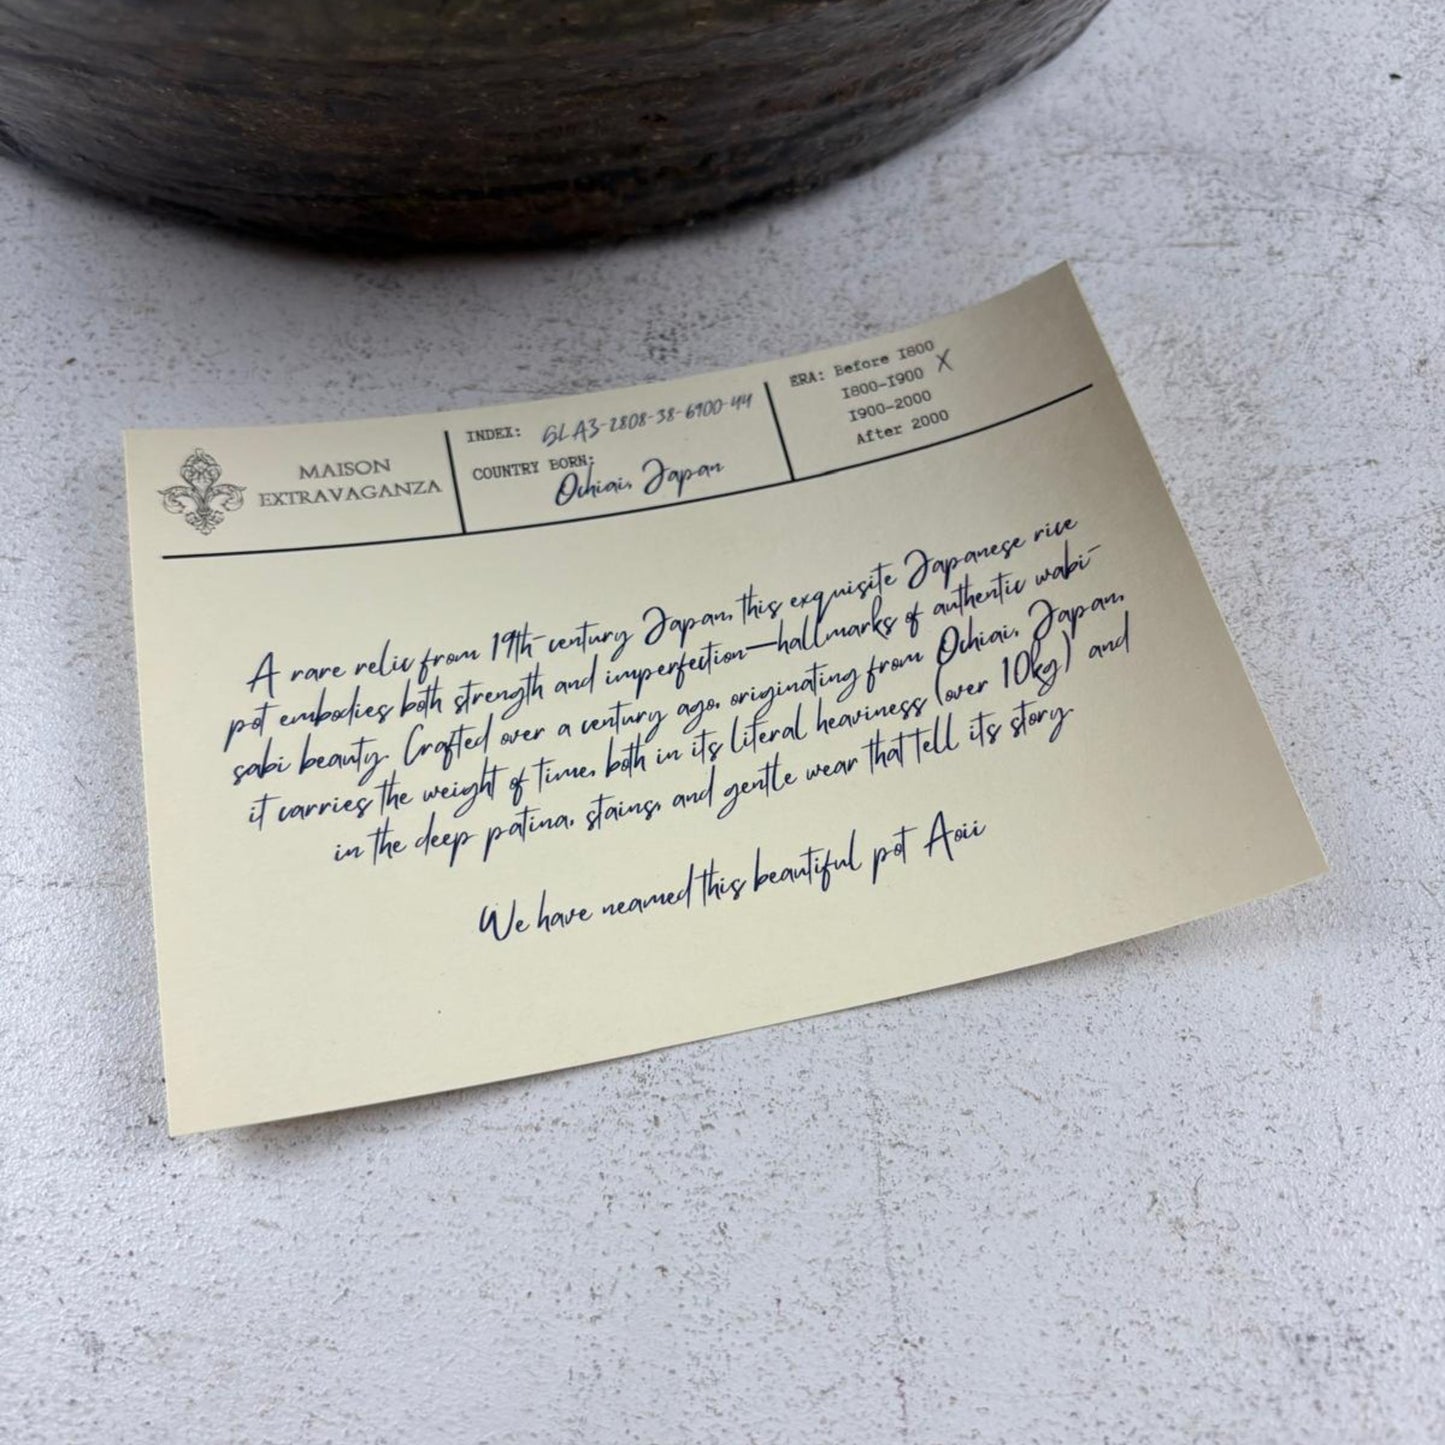 MAISON
EXTRAVAGANZA
INDEX: SLA3-2808-38-6900-44
COUNTRY BORN:
Ochiai, Japan
ERA: Before 1800
1800-1900 X
1900-2000
After 2000
A rare relic from 19th-century Japan, this exquisite Japanese rice
pot embodies both strength and imperfection—hallmarks of authentic wabi-
sabi beauty. Crafted over a century ago, originating from Ochiai, Japan,
it carries the weight of time, both in its literal heaviness (over 10kg) and
in the deep patina, stains, and gentle wear that tell its story.
We have neamed this beautiful pot Aoii